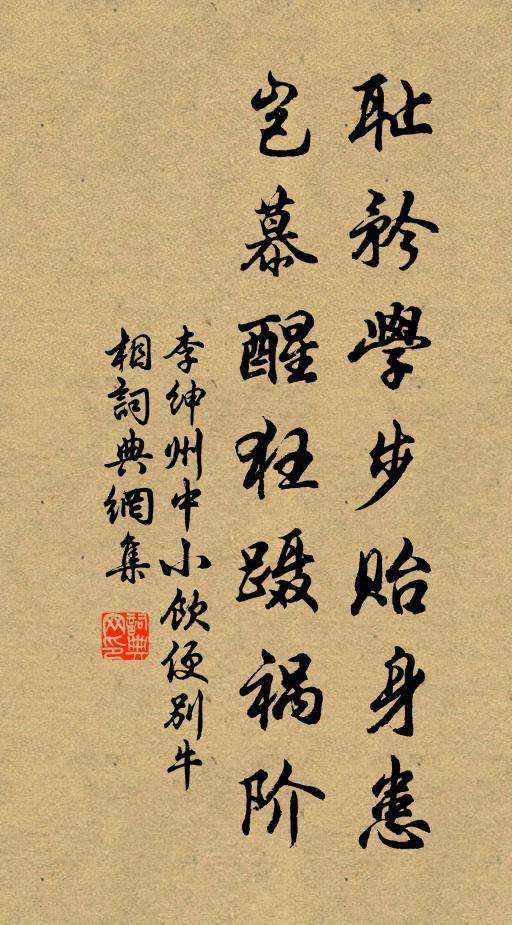 耻矜學步貽身患
岂慕醒狂蹑祸阶
李绅州中小飲便别牛
相詞典網集
詞典網印